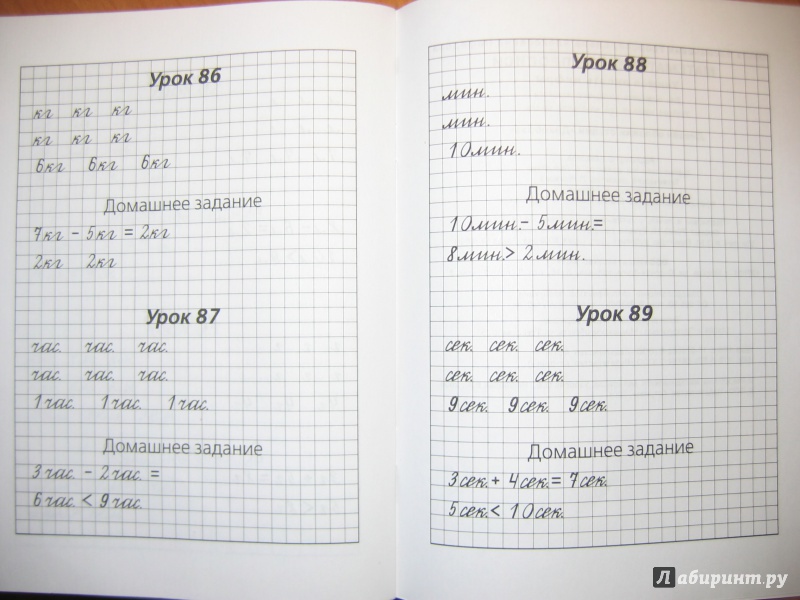 Урок 86
кг кг кг
кг кг кг
6кг 6кг 6кг
Домашнее задание
7кг - 5кг = 2кг
2кг 2кг
Урок 87
час. час. час.
час. час. час.
1час. 1час. 1час.
Домашнее задание
3час. - 2час. =
6час. < 9час.
Урок 88
мин.
мин.
10мин.
Домашнее задание
10мин.- 5мин.=
8мин.> 2мин.
Урок 89
сек. сек. сек.
сек. сек. сек.
9сек. 9сек. 9сек.
Домашнее задание
3сек.+ 4сек.= 7сек.
5сек.< 10сек.
Лабиринт.ру